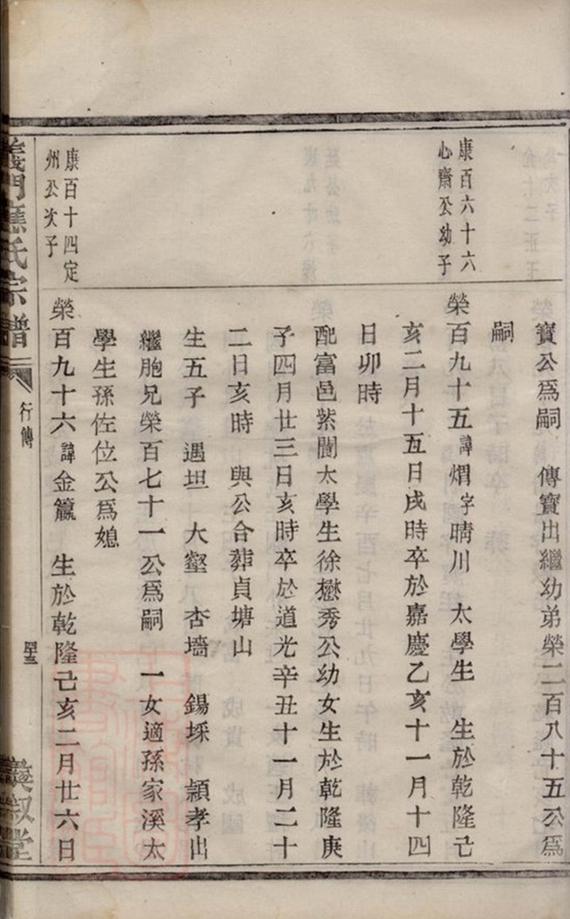 康百六十六
心齋公幼子
寶公為嗣　傳寶出繼幼弟榮二百八十五公為
嗣
榮百九十五諱熠字晴川　太學生　生於乾隆己
亥二月十五日戌時卒於嘉慶乙亥十一月十四
日卯時
配富邑紫閬太學生徐懋秀公幼女生於乾隆庚
子四月廿三日亥時卒於道光辛丑十一月二十
二日亥時　與公合葬貞塘山
生五子　遇坦　大壑　杏墻　錫埰　頴孝出
繼胞兄榮百七十一公為嗣　一女適孫家溪太
學生孫佐位公為媳
康百十四定
州公次子
榮百九十六諱金籯　生於乾隆己亥二月廿六日
義門應氏宗譜
行傳
義叙堂